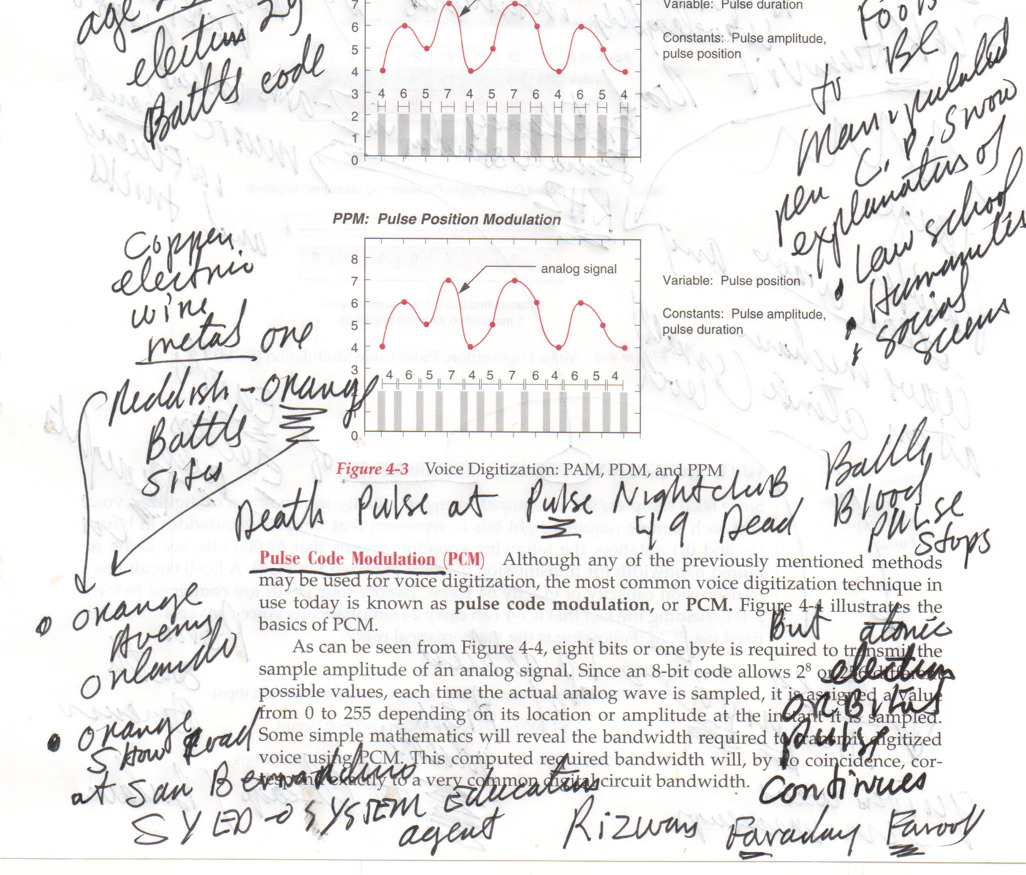 age
electrum 29
Battls code
7
6
5
4
3
2
1
0
4 6 5 7 4 5 7 6 4 6 5 4
Variable: Pulse duration
Constants: Pulse amplitude,
pulse position
Fools
Be
to
Manipulated
per C. P. Snow
explanation of
Law school
Humanities
social
Copper
electric
wire
metal one
Reddish-orange
Battle
Sites
PPM: Pulse Position Modulation
8
7
6
5
4
3
2
1
0
analog signal
4 6 5 7 4 5 7 6 4 6 5 4
Variable: Pulse position
Constants: Pulse amplitude,
pulse duration
Figure 4-3 Voice Digitization: PAM, PDM, and PPM
Death Pulse at Pulse Nightclub
49 Dead
Battle
Blood
Pulse
Stops
Pulse Code Modulation (PCM) Although any of the previously mentioned methods
may be used for voice digitization, the most common voice digitization technique in
use today is known as pulse code modulation, or PCM. Figure 4-4 illustrates the
basics of PCM.
As can be seen from Figure 4-4, eight bits or one byte is required to transmit the
sample amplitude of an analog signal. Since an 8-bit code allows 2⁸ or 256 different
possible values, each time the actual analog wave is sampled, it is assigned a value
from 0 to 255 depending on its location or amplitude at the instant it is sampled.
Some simple mathematics will reveal the bandwidth required to transmit digitized
voice using PCM. This computed required bandwidth will, by no coincidence, cor-
respond exactly to a very common digital circuit bandwidth.
orange
Avenue
Orlando
orange
Show Road
at San Bernardino
SYED-O SYSTEM Education
agent
Rizwan Faraday Farook
But atomic
electron
orbital
pulse
Continues